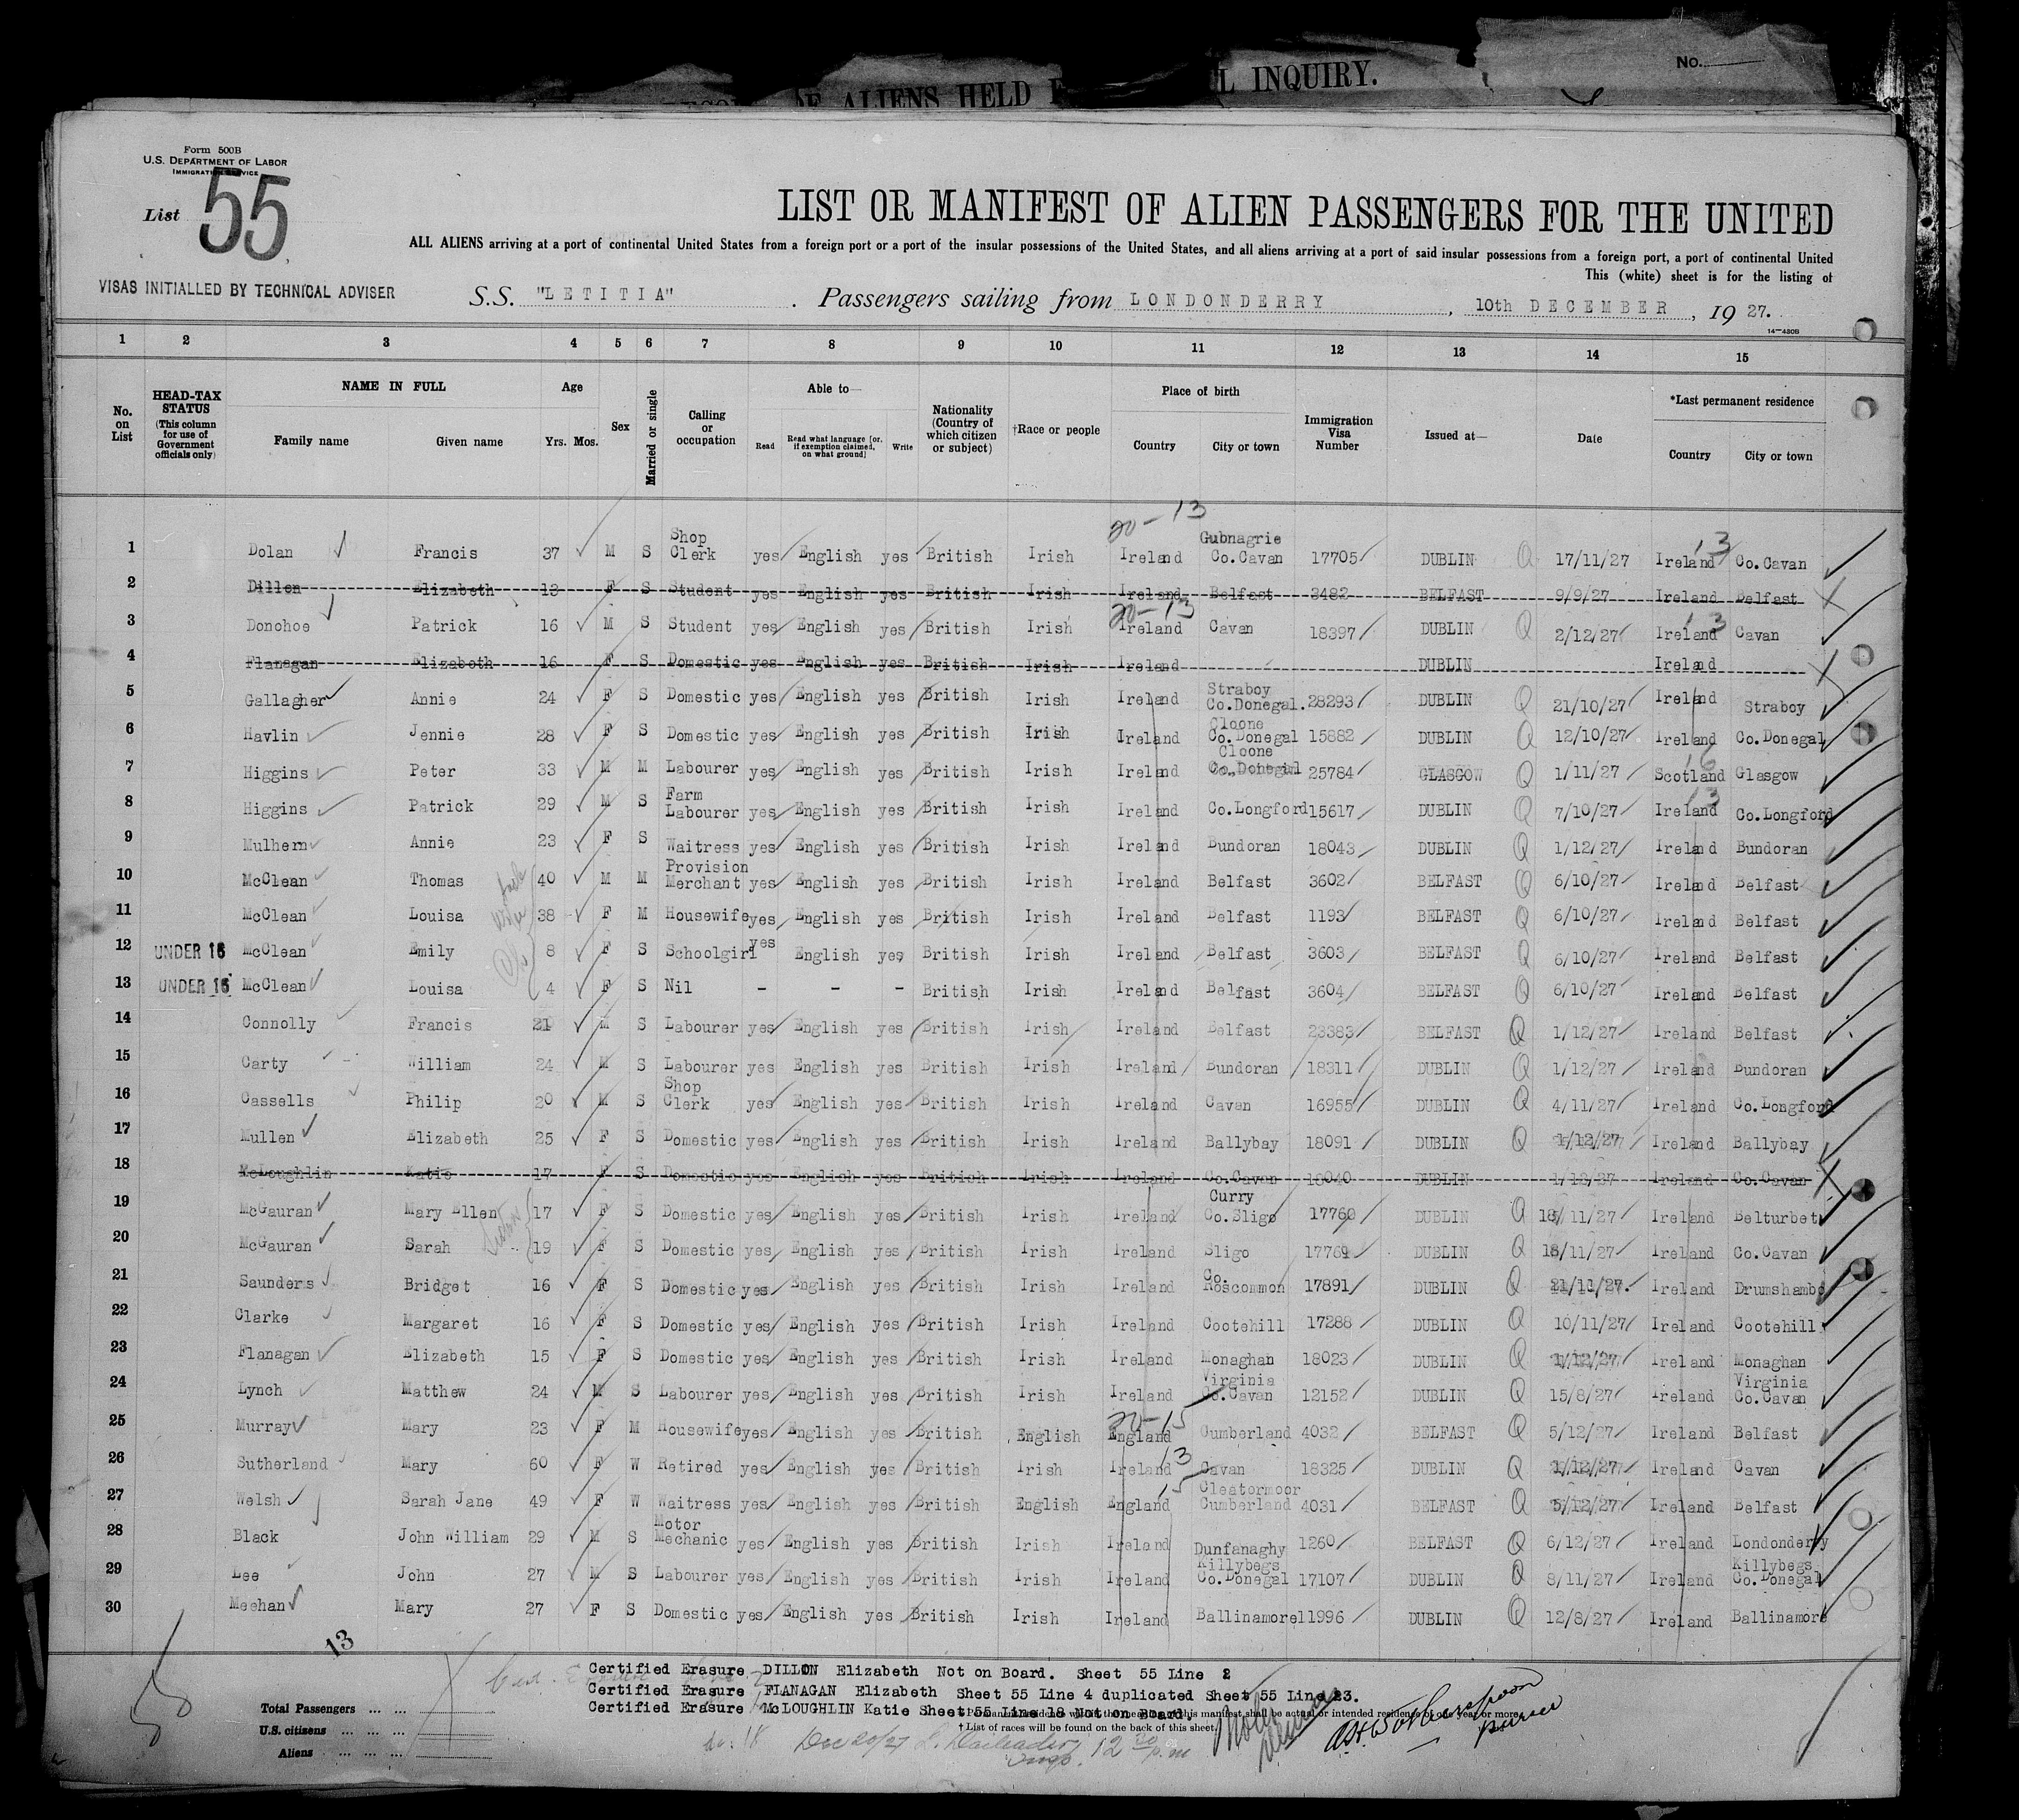 No.
ALIENS HELD F L INQUIRY.
Form 500B
U.S. DEPARTMENT OF LABOR
IMMIGRATION SERVICE
List 55
LIST OR MANIFEST OF ALIEN PASSENGERS FOR THE UNITED
ALL ALIENS arriving at a port of continental United States from a foreign port or a port of the insular possessions of the United States, and all aliens arriving at a port of said insular possessions from a foreign port, a port of continental United
This (white) sheet is for the listing of
VISAS INITIALLED BY TECHNICAL ADVISER
S.S. "LETITIA" . Passengers sailing from LONDONDERRY, 10th DECEMBER, 19 27.
14—430B
1 2 3 4 5 6 7 8 9 10 11 12 13 14 15
No. on List
HEAD-TAX STATUS (This column for use of Government officials only)
NAME IN FULL
Family name Given name
Age
Yrs. Mos.
Sex
Married or single
Calling or occupation
Able to—
Read
Read what language [or, if exemption claimed, on what ground]
Write
Nationality (Country of which citizen or subject)
†Race or people
Place of birth
Country City or town
Immigration Visa Number
Issued at—
Date
*Last permanent residence
Country City or town
20-13
1 Dolan Francis 37 M S Shop Clerk yes English yes British Irish Ireland Gubnagrie Co.Cavan 17705 DUBLIN Q 17/11/27 Ireland 13 Co.Cavan
2 Dillon Elizabeth 13 F S Student yes English yes British Irish Ireland Belfast 3482 BELFAST 9/9/27 Ireland Belfast X
20-13
3 Donohoe Patrick 16 M S Student yes English yes British Irish Ireland Cavan 18397 DUBLIN Q 2/12/27 Ireland 13 Cavan
4 Flanagan Elizabeth 16 F S Domestic yes English yes British Irish Ireland DUBLIN Ireland X
5 Gallagher Annie 24 F S Domestic yes English yes British Irish Ireland Straboy Co.Donegal. 28293 DUBLIN Q 21/10/27 Ireland Straboy
6 Havlin Jennie 28 F S Domestic yes English yes British Irish Ireland Cloone Co.Donegal 15882 DUBLIN Q 12/10/27 Ireland Co.Donegal
7 Higgins Peter 33 M M Labourer yes English yes British Irish Ireland Cloone Co.Donegal 25784 GLASGOW Q 1/11/27 Scotland 16 Glasgow
8 Higgins Patrick 29 M S Farm Labourer yes English yes British Irish Ireland Co.Longford 15617 DUBLIN Q 7/10/27 Ireland 13 Co.Longford
9 Mulhern Annie 23 F S Waitress yes English yes British Irish Ireland Bundoran 18043 DUBLIN Q 1/12/27 Ireland Bundoran
10 McClean Thomas 40 M M Provision Merchant yes English yes British Irish Ireland Belfast 3602 BELFAST Q 6/10/27 Ireland Belfast
11 McClean Louisa wife 38 F M Housewife yes English yes British Irish Ireland Belfast 1193 BELFAST Q 6/10/27 Ireland Belfast
12 UNDER 16 McClean Emily 8 F S Schoolgirl yes English yes British Irish Ireland Belfast 3603 BELFAST Q 6/10/27 Ireland Belfast
13 UNDER 16 McClean Louisa 4 F S Nil - - - British Irish Ireland Belfast 3604 BELFAST Q 6/10/27 Ireland Belfast
14 Connolly Francis 21 M S Labourer yes English yes British Irish Ireland Belfast 23383 BELFAST Q 1/12/27 Ireland Belfast
15 Carty William 24 M S Labourer yes English yes British Irish Ireland Bundoran 18311 DUBLIN Q 1/12/27 Ireland Bundoran
16 Cassells Philip 20 M S Shop Clerk yes English yes British Irish Ireland Cavan 16955 DUBLIN Q 4/11/27 Ireland Co.Longford
17 Mullen Elizabeth 25 F S Domestic yes English yes British Irish Ireland Ballybay 18091 DUBLIN Q 1/12/27 Ireland Ballybay
18 McLoughlin Katie 17 F S Domestic yes English yes British Irish Ireland Co.Cavan 18040 DUBLIN 1/12/27 Ireland Co.Cavan X
19 McGauran Mary Ellen 17 F S Domestic yes English yes British Irish Ireland Curry Co.Sligo 17760 DUBLIN Q 18/11/27 Ireland Belturbet
20 McGauran Sarah 19 F S Domestic yes English yes British Irish Ireland Sligo 17761 DUBLIN Q 18/11/27 Ireland Co.Cavan
21 Saunders Bridget 16 F S Domestic yes English yes British Irish Ireland Co. Roscommon 17891 DUBLIN Q 21/11/27. Ireland Drumshambo
22 Clarke Margaret 16 F S Domestic yes English yes British Irish Ireland Cootehill 17288 DUBLIN Q 10/11/27 Ireland Cootehill
23 Flanagan Elizabeth 15 F S Domestic yes English yes British Irish Ireland Monaghan 18023 DUBLIN Q 1/12/27 Ireland Monaghan
24 Lynch Matthew 24 M S Labourer yes English yes British Irish Ireland Virginia Co.Cavan 12152 DUBLIN Q 15/8/27 Ireland Virginia Co.Cavan
20-15
25 Murray Mary 23 F M Housewife yes English yes British English England Cumberland 4032 BELFAST Q 5/12/27 Ireland Belfast
26 Sutherland Mary 60 F W Retired yes English yes British Irish Ireland 13 Cavan 18325 DUBLIN Q 1/12/27 Ireland Cavan
27 Welsh Sarah Jane 49 F W Waitress yes English yes British English England 15 Cleatormoor Cumberland 4031 BELFAST Q 5/12/27 Ireland Belfast
28 Black John William 29 M S Motor Mechanic yes English yes British Irish Ireland Dunfanaghy 1260 BELFAST Q 6/12/27 Ireland Londonderry
29 Lee John 27 M S Labourer yes English yes British Irish Ireland Killybegs Co.Donegal 17107 DUBLIN Q 8/11/27 Ireland Killybegs Co.Donegal
30 Meehan Mary 27 F S Domestic yes English yes British Irish Ireland Ballinamore 11996 DUBLIN Q 12/8/27 Ireland Ballinamore
13
Certified Erasure DILLON Elizabeth Not on Board. Sheet 55 Line 2
Certified Erasure FLANAGAN Elizabeth Sheet 55 Line 4 duplicated Sheet 55 Line 23.
Certified Erasure McLOUGHLIN Katie Sheet 55 Line 18 Not on Board.
Total Passengers ... ...
U.S. citizens ... ... ...
Aliens ... ... ...
† List of races will be found on the back of this sheet.
18 Dec 20/27 12 30 p.m
Purser